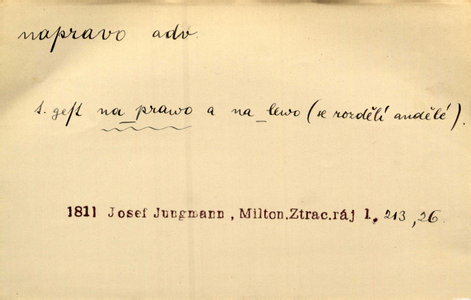 napravo adv.
t. gest na_prawo a na_lewo (se rozdělí andělé).
1811 Josef Jungmann, Milton.Ztrac.ráj 1, 213, 26.